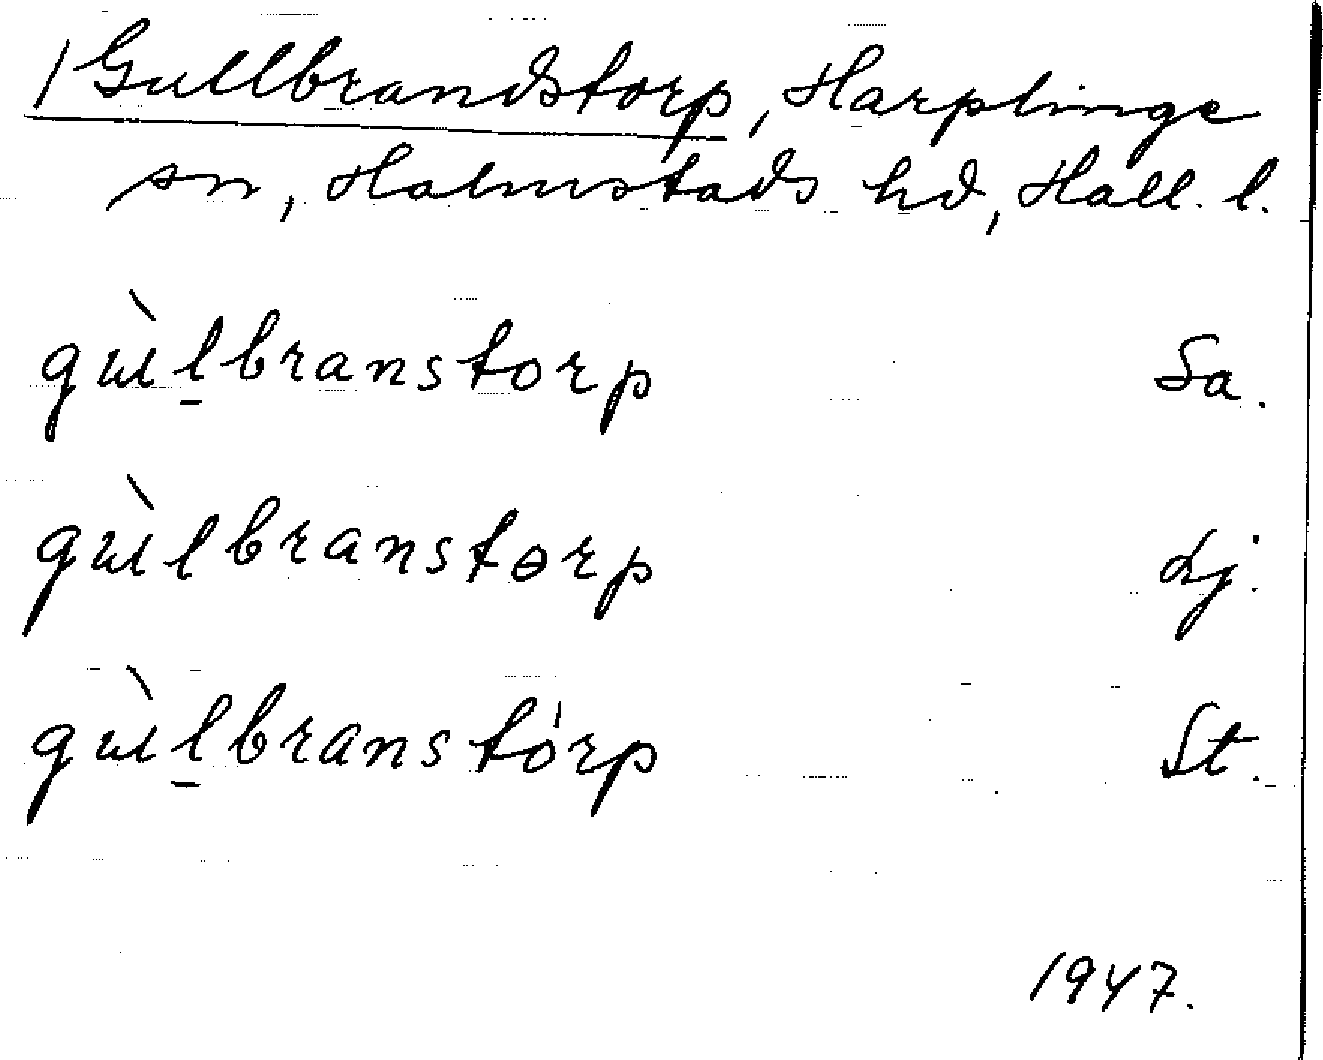 /Gullbrandstorp, Harplinge
sn, Halmstads hd, Hall. l.
gùl̠branstorp Sa.
gùlbranstɵrp Lj.
gùl̠branstórp St.
1947.